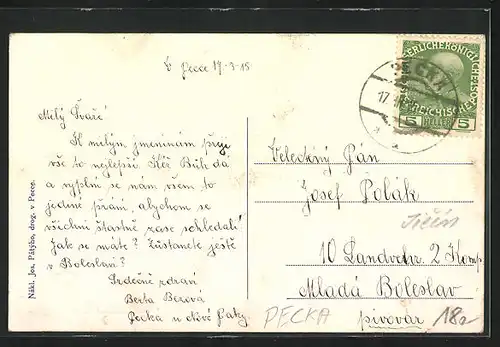 V Pecce 17-3-15
Milý Švaří
K milým jmeninám přeji
vše to nejlepší. Kéž Bůh dá
a vyplní se nám všem to
jediné přání, abychom se
všichni šťastně zase schledali
Jak se máte? Zůstanete ještě
v Boleslavi?
Srdečně zdraví
Berta
Pecka u Nové Paky
Nákl. Jos. Pátýho, drog. v Pecce.
PECKA
17
5 HELLER 5
Velectěný Pán
Josef Polák
Jičín
10 Landwehr. 2 Komp.
Mladá Boleslav
pivovár
PECKA
18